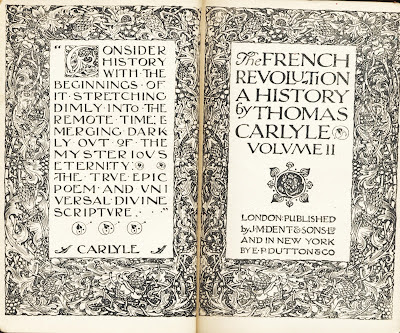 "CONSIDER
HISTORY
WITH·THE
BEGINNINGS·OF
IT·STRETCHING
DIMLY·INTO·THE
REMOTE·TIME; E
MERGING·DARK
LY·OUT·OF·THE
MYSTERIOVS
ETERNITY:
THE·TRVE·EPIC
POEM·AND·UNI
VERSAL·DIVINE
SCRIPTURE. . ."
CARLYLE
The FRENCH
REVOLUTION
A HISTORY
by THOMAS
CARLYLE
VOLVME II
LONDON·PUBLISHED
by J·M·DENT·&·SONS·LTD
AND IN NEW YORK
BY E·P·DUTTON & CO